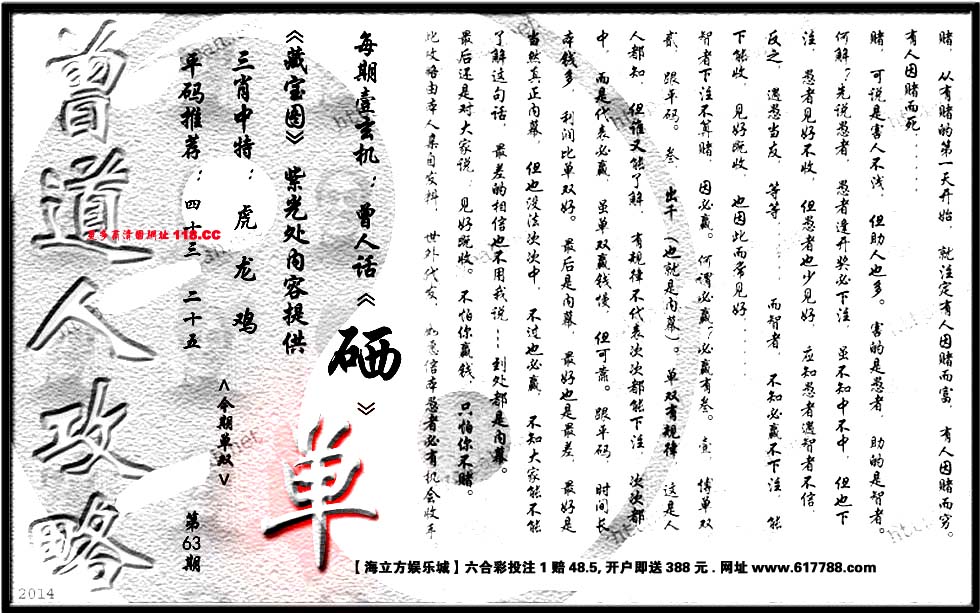 赌，从有赌的第一天开始，就注定有人因赌而富，有人因赌而穷。
有人因赌而死……
赌，可说是害人不浅，但助人也多。害的是愚者，助的是智者。
何解？先说愚者，愚者逢开奖必下注，虽不知中不中，但也下
注，愚者见好不收，但愚者也少见好，应知愚者遇智者不信，
反之，遇愚当友，等等……而智者，不知必赢不下注，能
下能收，见好既收，也因此而常见好……
智者下注不算赌，因必赢。何谓必赢？必赢有叁。壹，博单双
贰，跟平码。叁，出千（也就是内幕）。单双有规律，这是人
人都知，但谁又能了解，有规律不代表次次都能下注，次次都
中，而是代表必赢，虽单双赢钱慢，但可靠。跟平码，时间长
本钱多，利润比单双好。最后是内幕，最好也是最差，最好是
当然真正内幕，但也没法次次中，不过也必赢，不知大家能不能
了解这句话，最差的相信也不用我说……到处都是内幕。
最后还是对大家说，见好既收。不怕你赢钱，只怕你不赌。
此攻略由本人亲自发料，世外代友，如意信本愚者必有机会收车
每期壹玄机：曾人话《硒》
《藏宝图》紫光处内容提供
三肖中特：虎 龙 鸡
平码推荐：四十三 二十五
<今期单双>
单
第63期
曾道人攻略
更多高清图网址118.CC
【海立方娱乐城】六合彩投注1赔48.5,开户即送388元.网址www.617788.com
2014